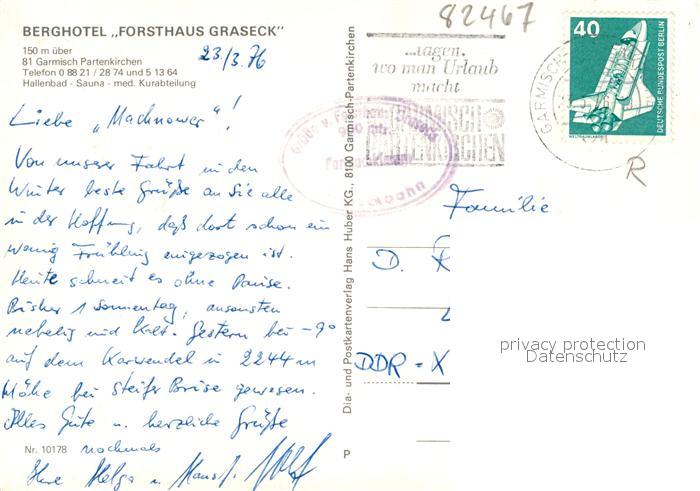 BERGHOTEL „FORSTHAUS GRASECK“
150 m über
81 Garmisch Partenkirchen
Telefon 0 88 21 / 28 74 und 5 13 64
Hallenbad - Sauna - med. Kurabteilung
23./3. 76
Liebe „Machnower“!
Von unserer Fahrt in den
Winter beste Grüße an Sie alle
in der Hoffnung, daß dort schon ein
wenig Frühling eingezogen ist.
Heute schneit es ohne Pause.
Bisher 1 Sonnentag, ansonsten
nebelig und kalt. Gestern bei -9°
auf dem Karwendel in 2244 m
Höhe bei steifer Brise gewesen.
Alles Gute u. herzliche Grüße
nochmals
Ihre Helga u. Hans
Nr. 10178
P
Dia- und Postkartenverlag Hans Huber KG., 8100 Garmisch-Partenkirchen
82467
...tagen,
wo man Urlaub
macht
GARMISCH
PARTENKIRCHEN
GARMISCH-
40
DEUTSCHE BUNDESPOST BERLIN
WELTRAUMLABOR
R
Familie
D.
DDR - X
privacy protection
Datenschutz